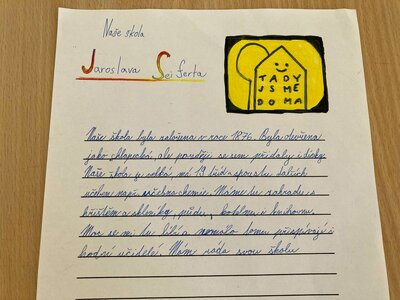 Naše škola
Jaroslava Seiferta
TADY
JSME
DOMA
Naše škola byla založena v roce 1876. Byla
jako chlapecká, ale později se sem přidaly i dívky.
Naše škola je velká, má 19 tříd spoustu dalších
učeben např. učebna chemie. Máme tu zahradu s
hřištěm a skleník, půdu, kotelnu i knihovnu.
Moc se mi tu líbí a nemálo tomu přispívají i
hodní učitelé. Mám ráda svou školu